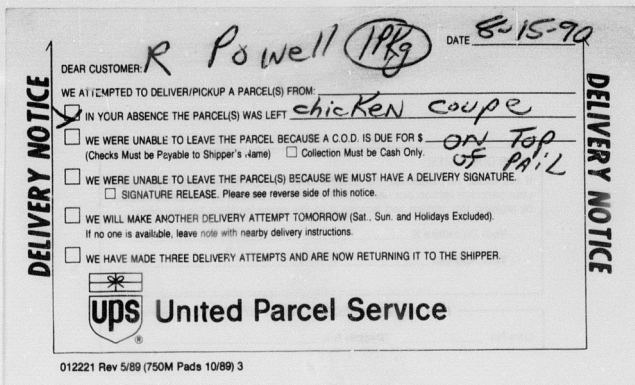 R Powell 1PKg DATE 8-15-90
DEAR CUSTOMER:
WE ATTEMPTED TO DELIVER/PICKUP A PARCEL(S) FROM:
IN YOUR ABSENCE THE PARCEL(S) WAS LEFT chicKEN coupe
WE WERE UNABLE TO LEAVE THE PARCEL BECAUSE A C.O.D. IS DUE FOR $ ON TOP
(Checks Must be Payable to Shipper's Name) Collection Must be Cash Only. OF PAIL
WE WERE UNABLE TO LEAVE THE PARCEL(S) BECAUSE WE MUST HAVE A DELIVERY SIGNATURE.
SIGNATURE RELEASE. Please see reverse side of this notice.
WE WILL MAKE ANOTHER DELIVERY ATTEMPT TOMORROW (Sat., Sun. and Holidays Excluded).
If no one is available, leave note with nearby delivery instructions.
WE HAVE MADE THREE DELIVERY ATTEMPTS AND ARE NOW RETURNING IT TO THE SHIPPER.
ups United Parcel Service
®
012221 Rev 5/89 (750M Pads 10/89) 3
DELIVERY NOTICE
DELIVERY NOTICE